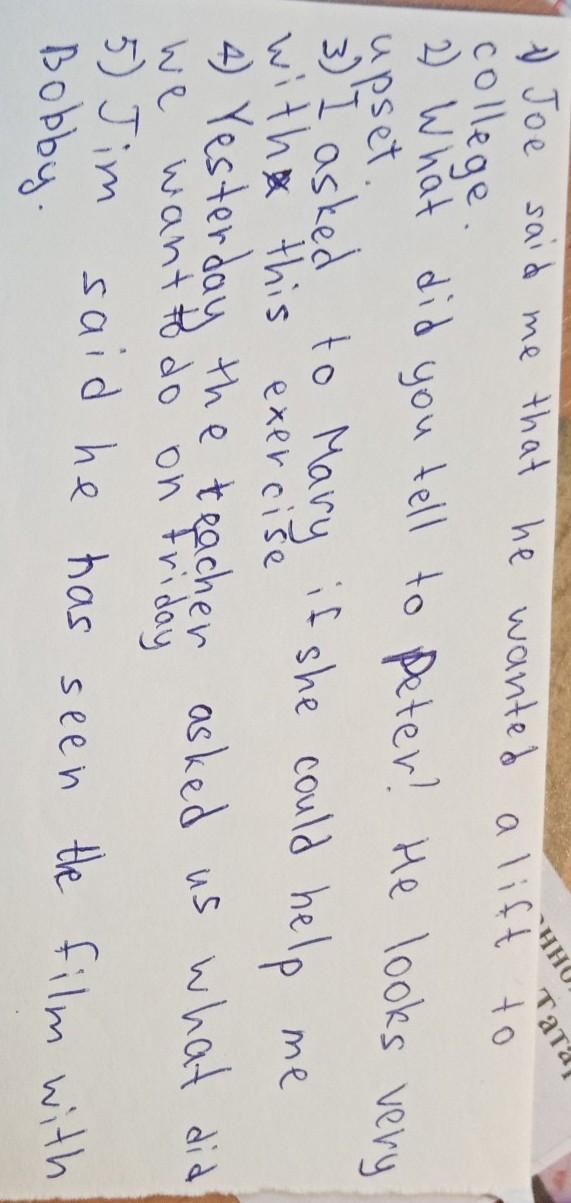 1) Joe said me that he wanted a lift to
college.
2) What did you tell to Peter? He looks very
upset.
3) I asked to Mary if she could help me
with this exercise
4) Yesterday the teacher asked us what did
we want to do on friday
5) Jim said he has seen the film with
Bobby.